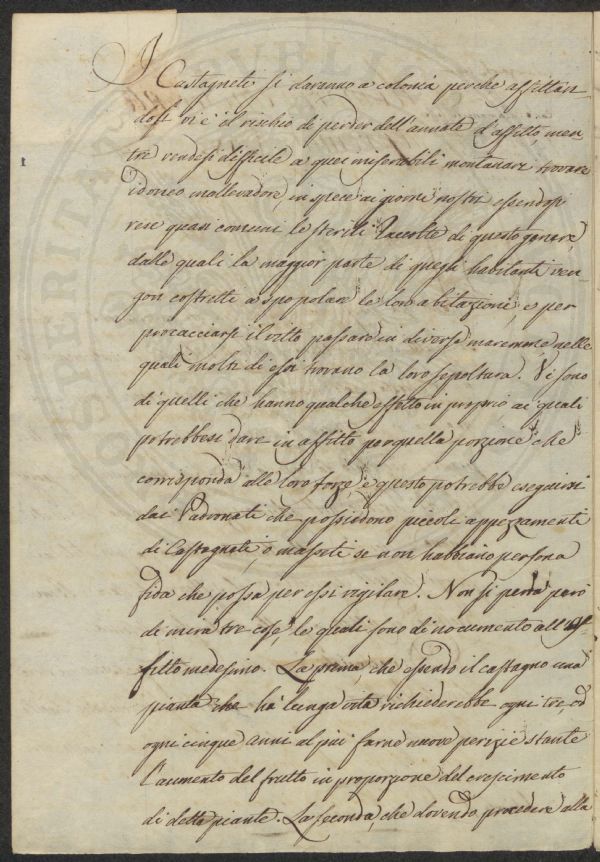 I Castagneti si daranno a colonia perche affittan-
dosi vi è il rischio di perder dell'annate d'affitto, men-
tre rendesi difficile a quei miserabili montanari trovare
idoneo mallevadore, in specie ai giorni nostri essendosi
rese quasi comuni le sterili Raccolte di questo genere,
dalle quali la maggior parte di quegli habitanti ven-
gon costretti a spopolare le loro abitazioni, e per
procacciarsi il vitto passare in diverse maremme, nelle
quali molti di essi trovano la loro sepoltura. Vi sono
di quelli che hanno qualche effetto in proprio ai quali
potrebbesi dare in affitto per quella porzione che
corrisponda alle loro forze, e questo potrebbe eseguirsi
dai Padronati che possiedono piccoli appezzamenti
di Castagneti, o masseti se non habbiano persona
fida che possa per essi vigilare. Non si perda però
di mira tre cose, le quali sono di nocumento all'Af-
fitto medesimo. La prima, che essendo il castagno una
pianta che ha lunga vita richiederebbe ogni tre, od
ogni cinque anni al più farne nuove perizie stante
l'aumento del frutto in proporzione del crescimento
di dette piante. La seconda, che dovendo procedere alla